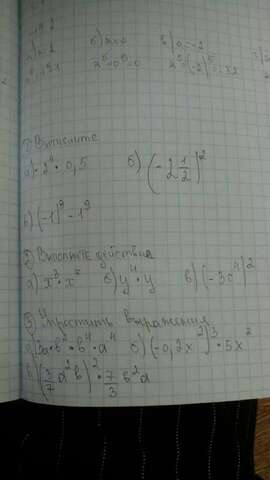 б) a=0 в) a=-2
a⁵=0⁵=0 a⁵=(-2)⁵=-32
① Вычислить:
а) -2⁴ · 0,5 б) (-2 1/2)²
в) (-1)⁹ - 1⁹
② Выполните действия
а) x³ · x⁵ б) y⁴ · y в) (-3c⁴)²
③ Упростить выражения
а) 3a · b² · b⁴ · a⁴ б) (-0,2x²)³ · 5x²
в) (3/7 a²b)² · 7/3 b²a